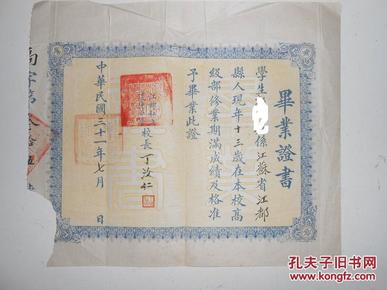 畢業證書
學生
係江蘇省江都
縣人現年十三歲在本校高
級部修業期滿成績及格准
予畢業此證
校長丁汝仁
中華民國三十一年七月 日
高字第
孔夫子旧书网